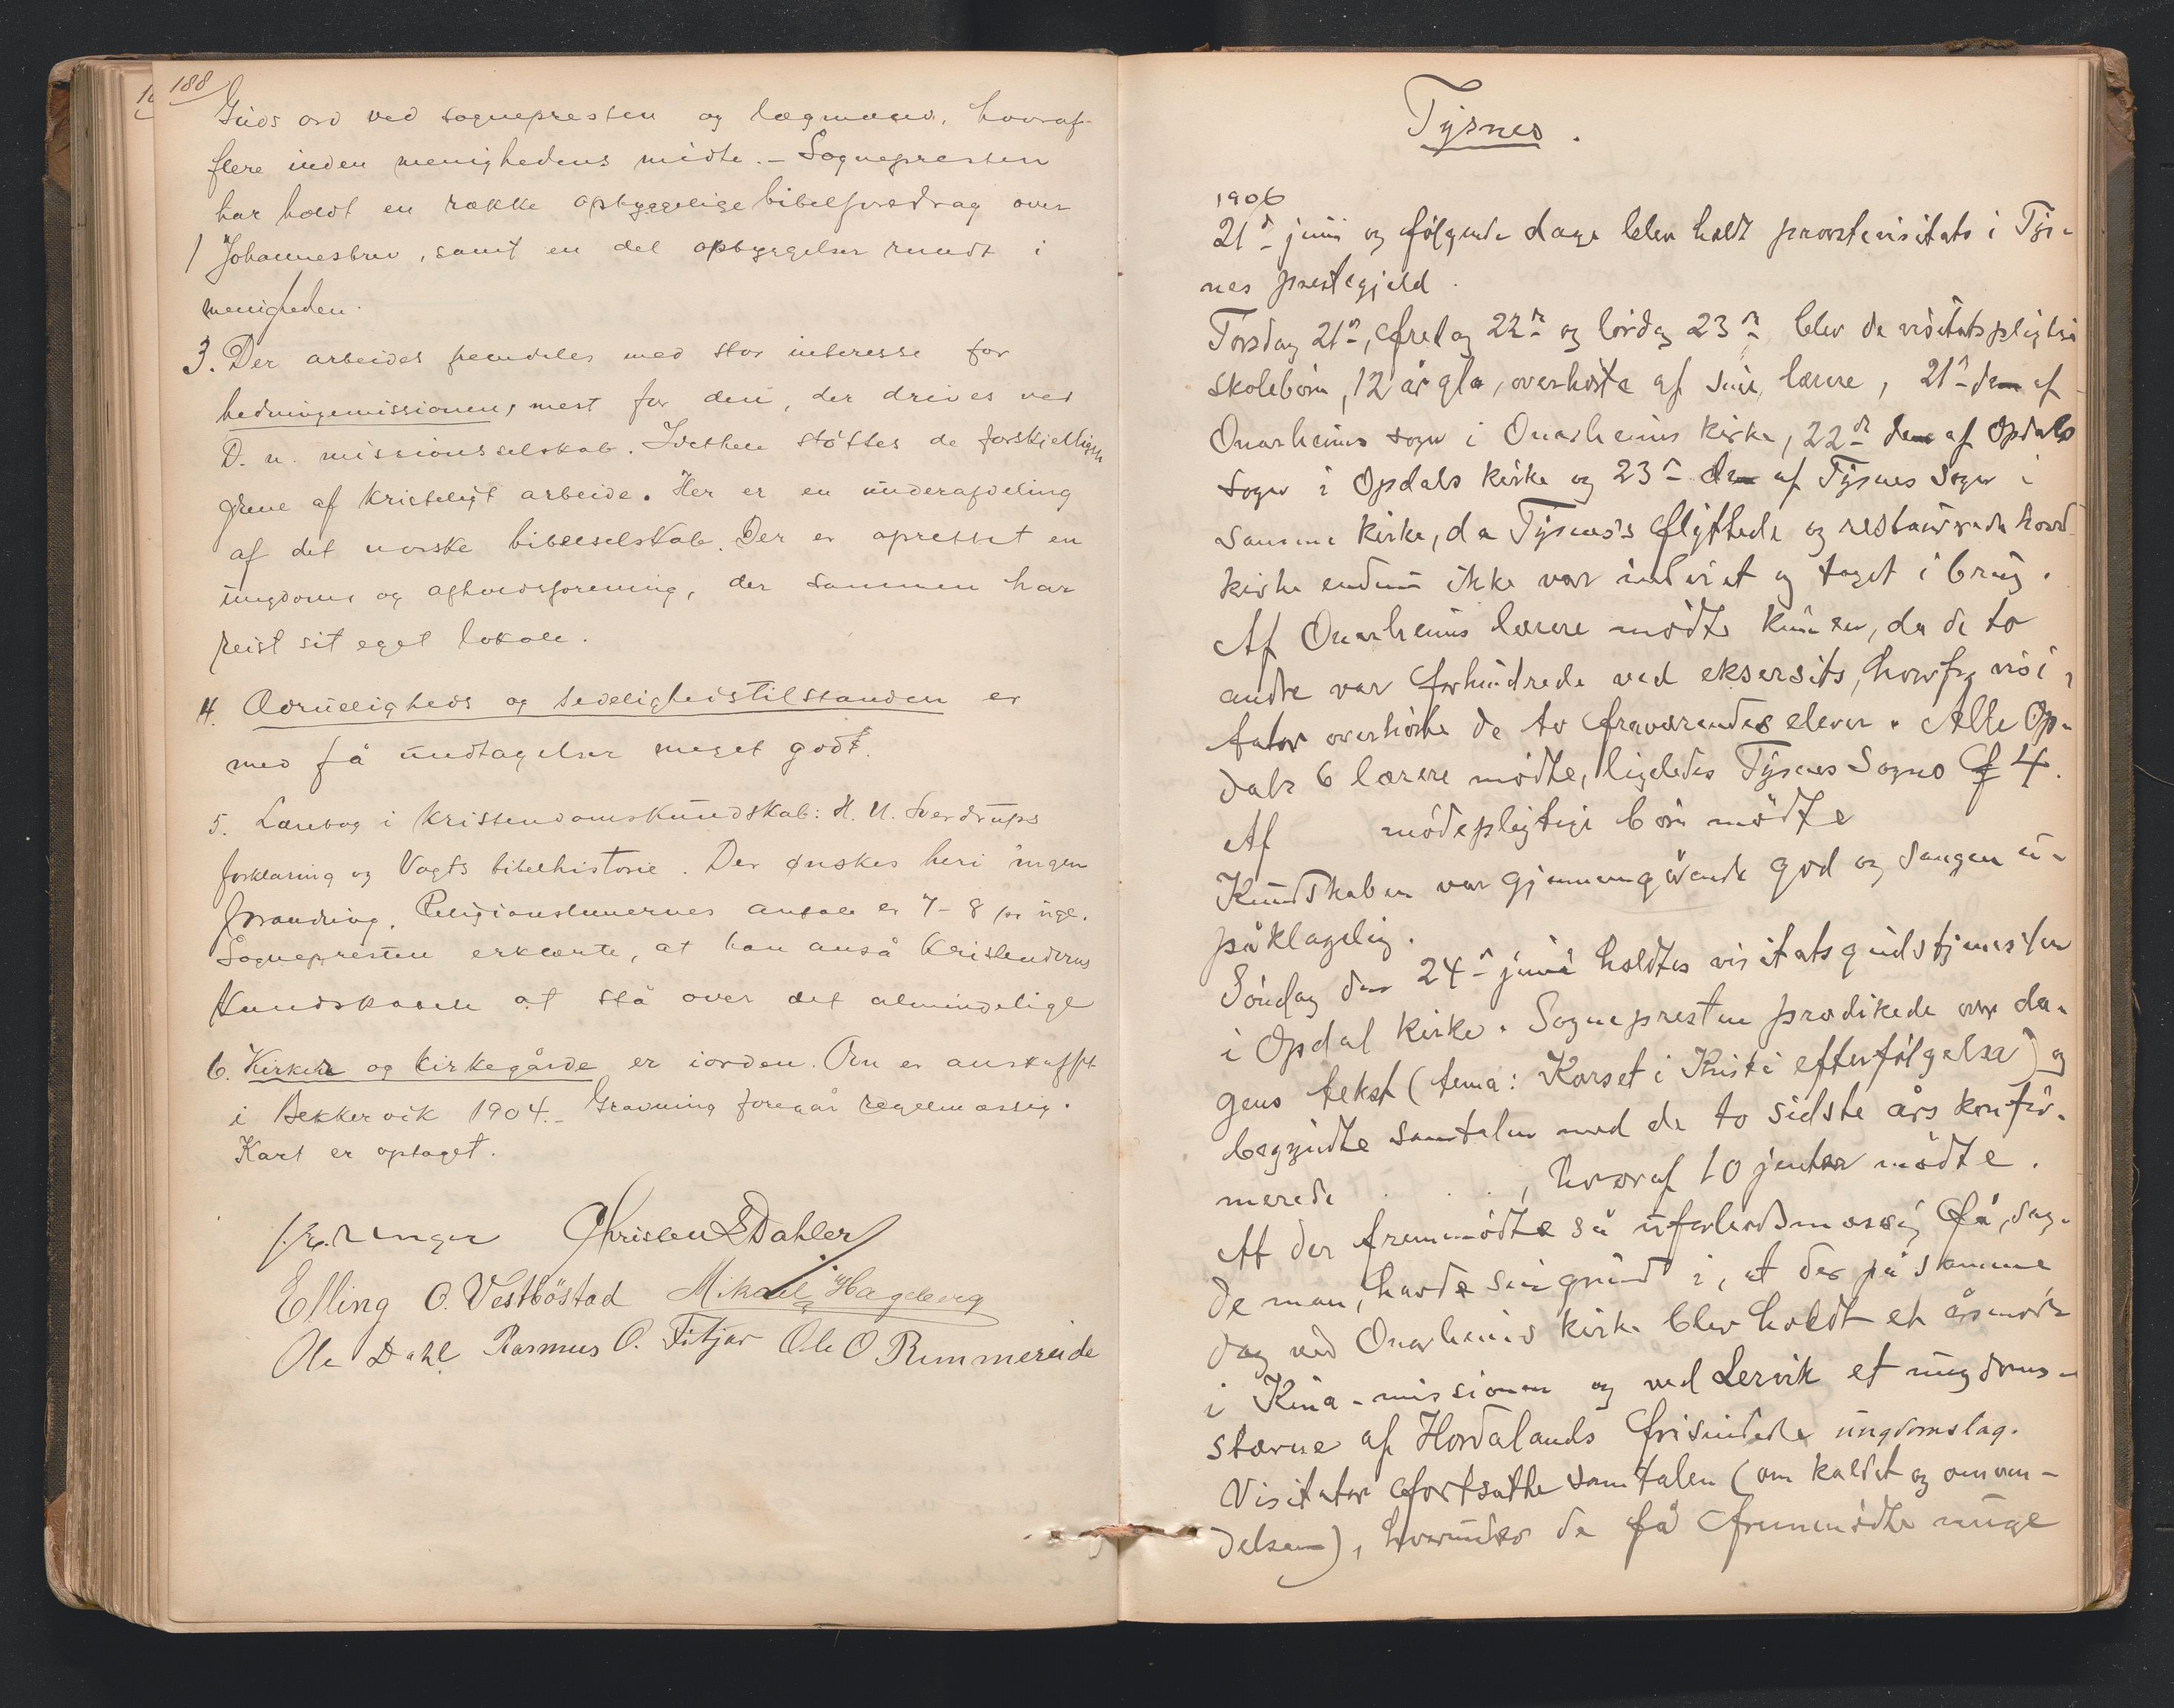 188
Guds ord ved sognepresten og lægmænd, hvoraf
flere inden menighedens midte. – Sognepresten
har holdt en række opbyggelige bibelforedrag over
1 Johannesbrev, samt en del opbyggelser rundt i
menigheden.
3. Der arbeides fremdeles med stor interesse for
hedningemissionen, mest for den, der drives ved
D. n. missionsselskab. Desuden støttes de forskjellige
grene af kristeligt arbeide. Her er en underafdeling
af det norske bibelselskab. Der er oprettet en
ungdoms og afholdsforening, der sammen har
reist sit eget lokale.
4. Ædrueligheds og sedelighedstilstanden er
med få undtagelser meget godt.
5. Lærebog i kristendomskundskab: H. U. Sverdrups
forklaring og Vogts bibelhistorie. Der ønskes heri ingen
forandring. Religionstimernes antal er 7–8 pr uge.
Sognepresten erklærte, at han anså kristendoms
kundskaben at stå over det almindelige
6. Kirker og kirkegårde er i orden. Ovn er anskaffet
i Bekkervik 1904. – Gravning foregår regelmæssig.
Kart er optaget.
Christen S Dahler
Elling O. Vestbøstad Mikael Hageberg
Ole Dahl Rasmus O. Fitjar Ole O Rimmereide
Tysnes.
1906
21d juni og følgende dage blev holdt provstevisitats i Tys-
nes prestegjeld.
Torsdag 21d, fredag 22d og lørdag 23d blev de visitatspligtige
skolebørn, 12 år gla, overhørte af sine lærere, 21d den af
Onarheims sogn i Onarheims kirke, 22d den af Opdals
sogn i Opdals kirke og 23d den af Tysnes Sogn i
samme kirke, da Tysnes's flyttede og restaurerede hoved
kirke endnu ikke var indviet og taget i brug.
Af Onarheims lærere mødte kun en, da de to
andre var forhindrede ved eksersits, hvorfor visi-
tator overhørte de to fraværendes elever. Alle Op-
dals 6 lærere mødte, ligeledes Tysnes Sogns 4.
Af mødepligtige børn mødte
Kundskaben var gjennemgående god og sangen u-
påklagelig.
Søndag den 24d juni holdtes visitatsgudstjenesten
i Opdal kirke. Sognepresten prædikede over da-
gens tekst (tema: Korset i Kristi efterfølgelse) og
begyndte samtalen med de to sidste års konfir-
merede , hvoraf 10 jenter mødte.
At der fremmødte så uforholdsmæssig få, sag-
de man, havde sin grund i, at der på samme
dag ved Onarheims kirke blev holdt et årsmøde
i Kina-missionen og ved Lervik et ungdoms-
stævne af Hordalands frisindede ungdomslag.
Visitator fortsatte samtalen (om kaldet og omven-
delsen), hvorunder de få fremmødte unge